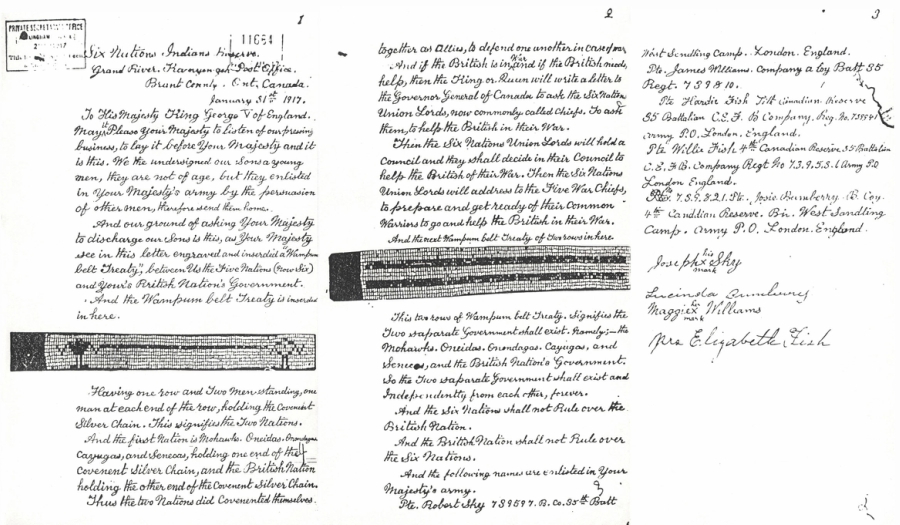 1
PRIVATE SECRETARY'S OFFICE
11654
Six Nations Indians Reserve.
Grand River. Kanyengeh Post Office.
Brant County. Ont. Canada.
January 31st 1917.
To His Majesty King George V of England.
May it Please Your Majesty to listen of our pressing
business, to lay it before Your Majesty and it
is this. We the undersigned our Sons a young
men, they are not of age, but they enlisted
in Your Majesty's army by the persuasion
of other men, therefore send them home.
And our ground of asking Your Majesty
to discharge our Sons is this, as Your Majesty
see in this letter engraved and inserded a "Wampum
belt Treaty", between Us the Five Nations (now Six)
and Your's British Nation's Government.
And the Wampum belt Treaty is inserded
in here.
Having one row and Two Men-standing, one
man at each end of the row, holding the Covenent
Silver Chain. This signifies the Two Nations.
And the first Nation is Mohawks. Oneidas. Onondagas
Cayugas, and Senecas, holding one end of the
Covenent Silver Chain, and the British Nation
holding the other end of the Covenent Silver Chain.
Thus the two Nations did Covenented themselves.
2
together as Allies, to defend one another in case of war.
And if the British is in War and if the British needs,
help, then the King or Queen will write a letter to
the Governor General of Canada to ask the Six Nation
Union Lords, now commonly called Chiefs. To ask
them, to help the British in their War.
Then the Six Nations Union Lords will hold a
Council and they shall decide in their Council to
help the British of their War. Then the Six Nations
Union Lords will address to the Five War Chiefs,
to prepare and get ready of their Common
Warriors to go and help the British in their War.
And the next Wampum belt Treaty of Two rows in here.
This two rows of Wampum belt Treaty. Signifies the
Two saparate Government shall exist. Namely;— the
Mohawks. Oneidas. Onondagas. Cayugas, and
Senecas, and the British Nation's Government.
So the Two saparate Government shall exist and
Independently from each other, forever.
And the Six Nations shall not Rule over the
British Nation.
And the British Nation shall not Rule over
the Six Nations.
And the following names are enlisted in Your
Majesty's army.
Pte. Robert Shy 739597. B. Co. 35th Batt
3
West Sandling Camp. London. England.
Pte. James Williams. Company a Coy Batt 35
Regt. 739810.
Pte Hardie Fish Canadian Reserve
35 Battalian C.E.F. B Company, Reg. No. 739941
army P.O. London. England.
Pte Willie Fish 4th Canadian Reserve 35 Battalian
C.E.F.B. Company Regt No 7.3.9.5.5.1 Army P.O
London England.
7.3.9.8.2.1. Pte. Josie Bumberry B. Coy.
4th Candtian Reserve. Bn. West Sandling
Camp. army P.O. London. England.
his
Joseph x Shy
mark
Lucinda Bumberry
her
Maggie x Williams
mark
Mrs Elizabeth Fish